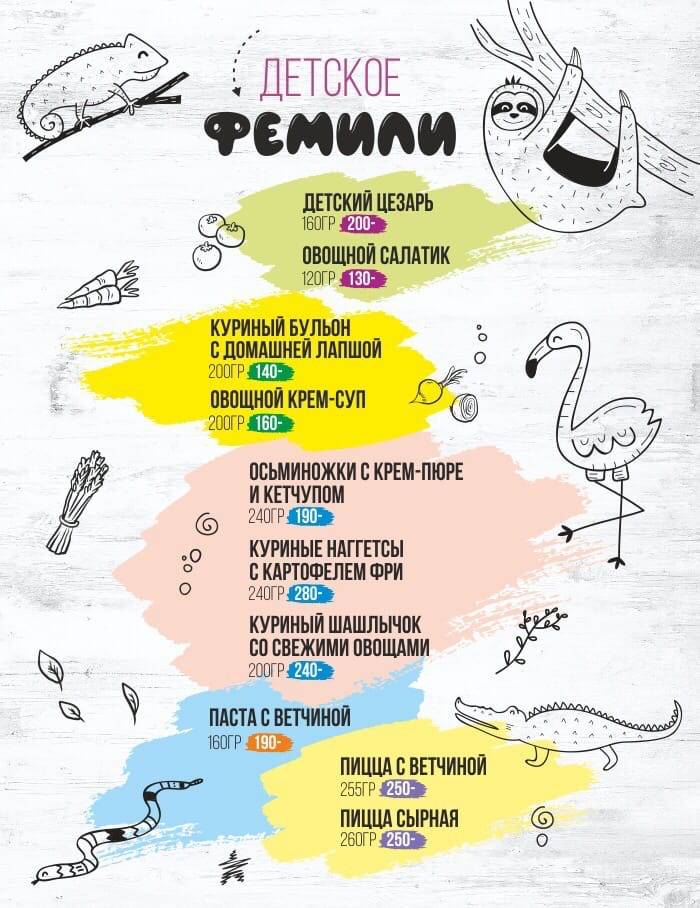 ДЕТСКОЕ
ФЕМИЛИ
ДЕТСКИЙ ЦЕЗАРЬ
160ГР 200-
ОВОЩНОЙ САЛАТИК
120ГР 130-
КУРИНЫЙ БУЛЬОН
С ДОМАШНЕЙ ЛАПШОЙ
200ГР 140-
ОВОЩНОЙ КРЕМ-СУП
200ГР 160-
ОСЬМИНОЖКИ С КРЕМ-ПЮРЕ
И КЕТЧУПОМ
240ГР 190-
КУРИНЫЕ НАГГЕТСЫ
С КАРТОФЕЛЕМ ФРИ
240ГР 280-
КУРИНЫЙ ШАШЛЫЧОК
СО СВЕЖИМИ ОВОЩАМИ
200ГР 240-
ПАСТА С ВЕТЧИНОЙ
160ГР 190-
ПИЦЦА С ВЕТЧИНОЙ
255ГР 250-
ПИЦЦА СЫРНАЯ
260ГР 250-